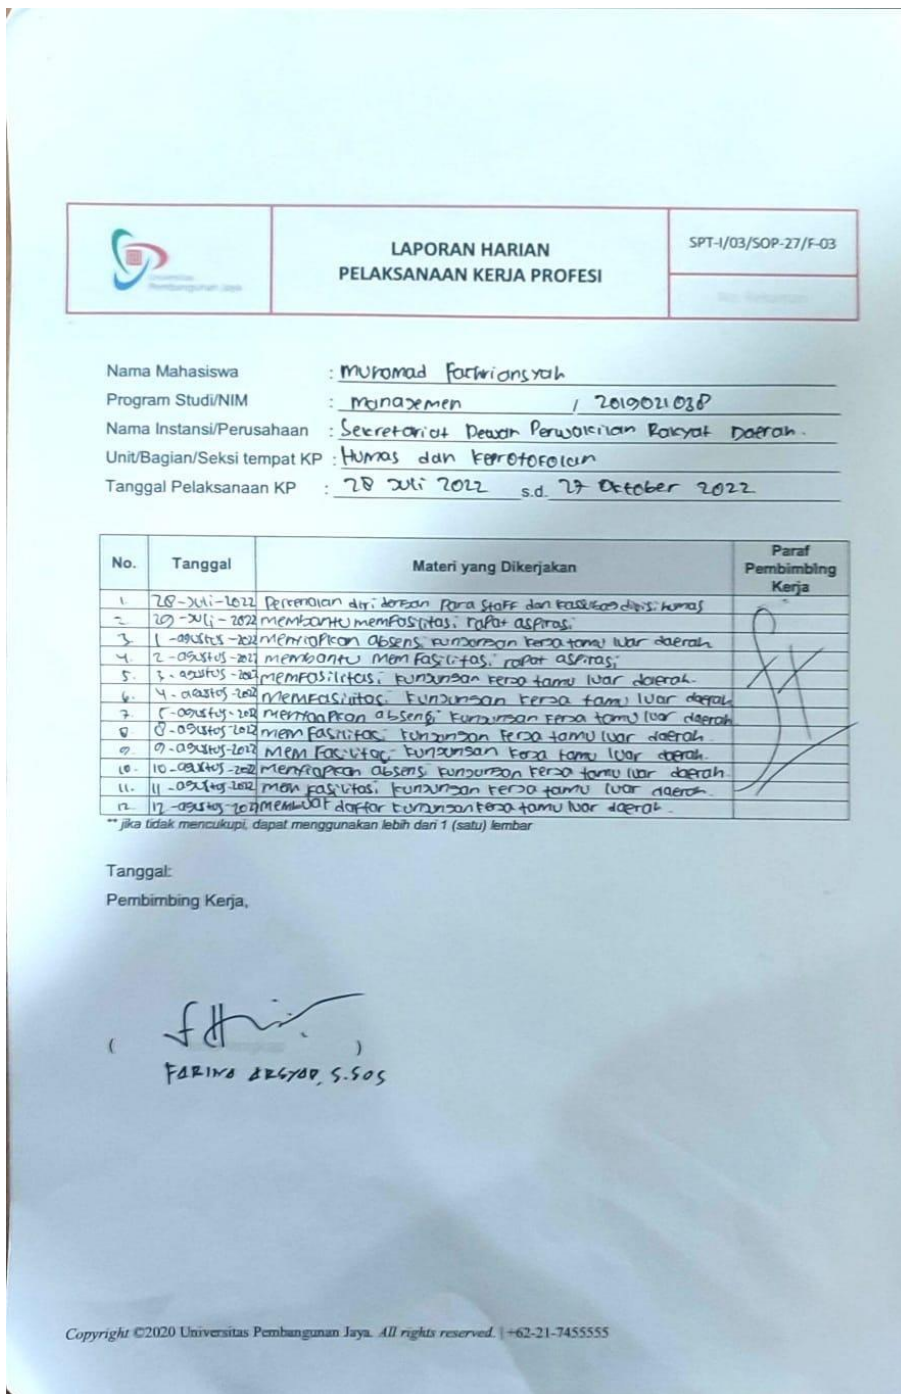 Universitas
Pembangunan Jaya
LAPORAN HARIAN
PELAKSANAAN KERJA PROFESI
SPT-I/03/SOP-27/F-03
Nama Mahasiswa : Muhomad Fachriansyah
Program Studi/NIM : manajemen / 2019021038
Nama Instansi/Perusahaan : Sekretariat Dewan Perwakilan Rakyat Daerah.
Unit/Bagian/Seksi tempat KP : Humas dan Keprotokolan
Tanggal Pelaksanaan KP : 28 Juli 2022 s.d. 27 Oktober 2022
No. Tanggal Materi yang Dikerjakan Paraf Pembimbing Kerja
1. 28-Juli-2022 Perkenalan diri dengan Para Staff dan divisi humas
2. 29-Juli-2022 membantu memfasilitasi rapat aspirasi
3. 1-agustus-2022 menyiapkan absensi kunjungan kerja tamu luar daerah
4. 2-agustus-2022 membantu memfasilitasi rapat aspirasi
5. 3-agustus-2022 memfasilitasi kunjungan kerja tamu luar daerah.
6. 4-agustus-2022 memfasilitasi kunjungan kerja tamu luar daerah
7. 5-agustus-2022 menyiapkan absensi kunjungan kerja tamu luar daerah
8 8-agustus-2022 memfasilitasi kunjungan kerja tamu luar daerah.
9. 9-agustus-2022 memfasilitasi kunjungan kerja tamu luar daerah.
10. 10-agustus-2022 menyiapkan absensi kunjungan kerja tamu luar daerah
11. 11-agustus-2022 memfasilitasi kunjungan kerja tamu luar daerah.
12. 12-agustus-2022 membuat daftar kunjungan kerja tamu luar daerah.
** jika tidak mencukupi, dapat menggunakan lebih dari 1 (satu) lembar
Tanggal:
Pembimbing Kerja,
( )
FARINO ARSYAD, S.SOS
Copyright ©2020 Universitas Pembangunan Jaya. All rights reserved. | +62-21-7455555